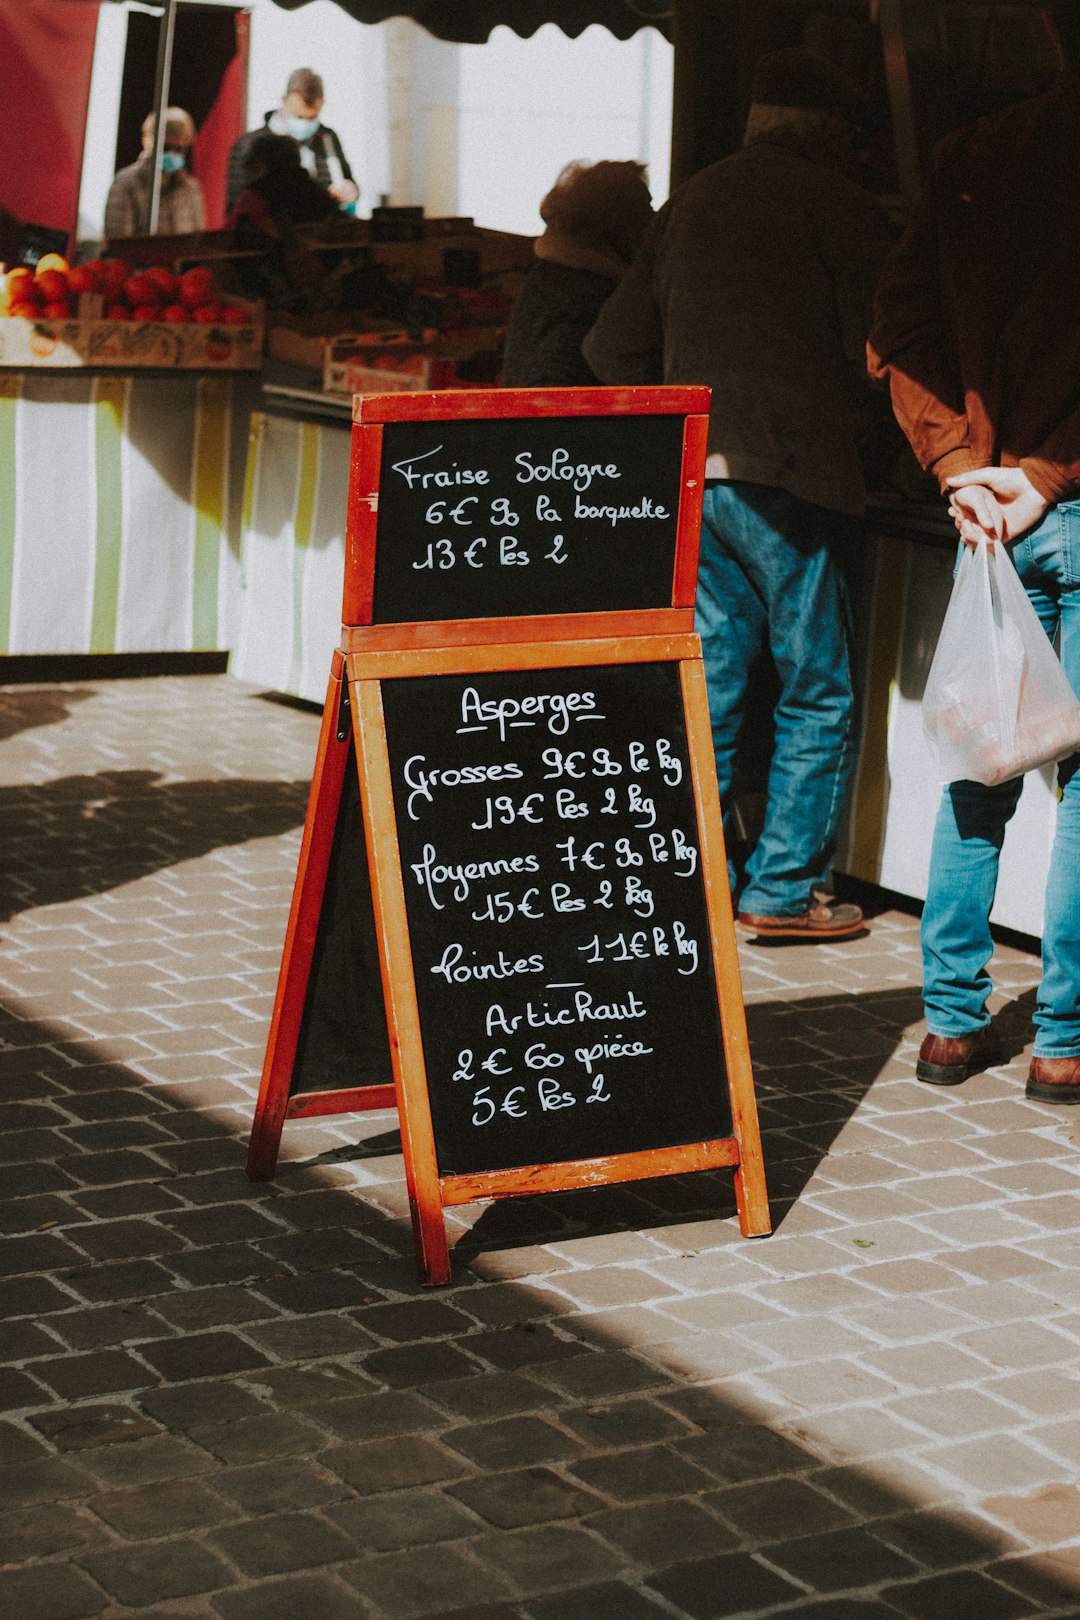 Fraise Sologne
6€ 90 la barquette
13€ les 2
Asperges
Grosses 9€90 le kg
19€ les 2 kg
Moyennes 7€ 90 le kg
15€ les 2 kg
Pointes 11€ le kg
Artichaut
2€ 60 pièce
5€ les 2